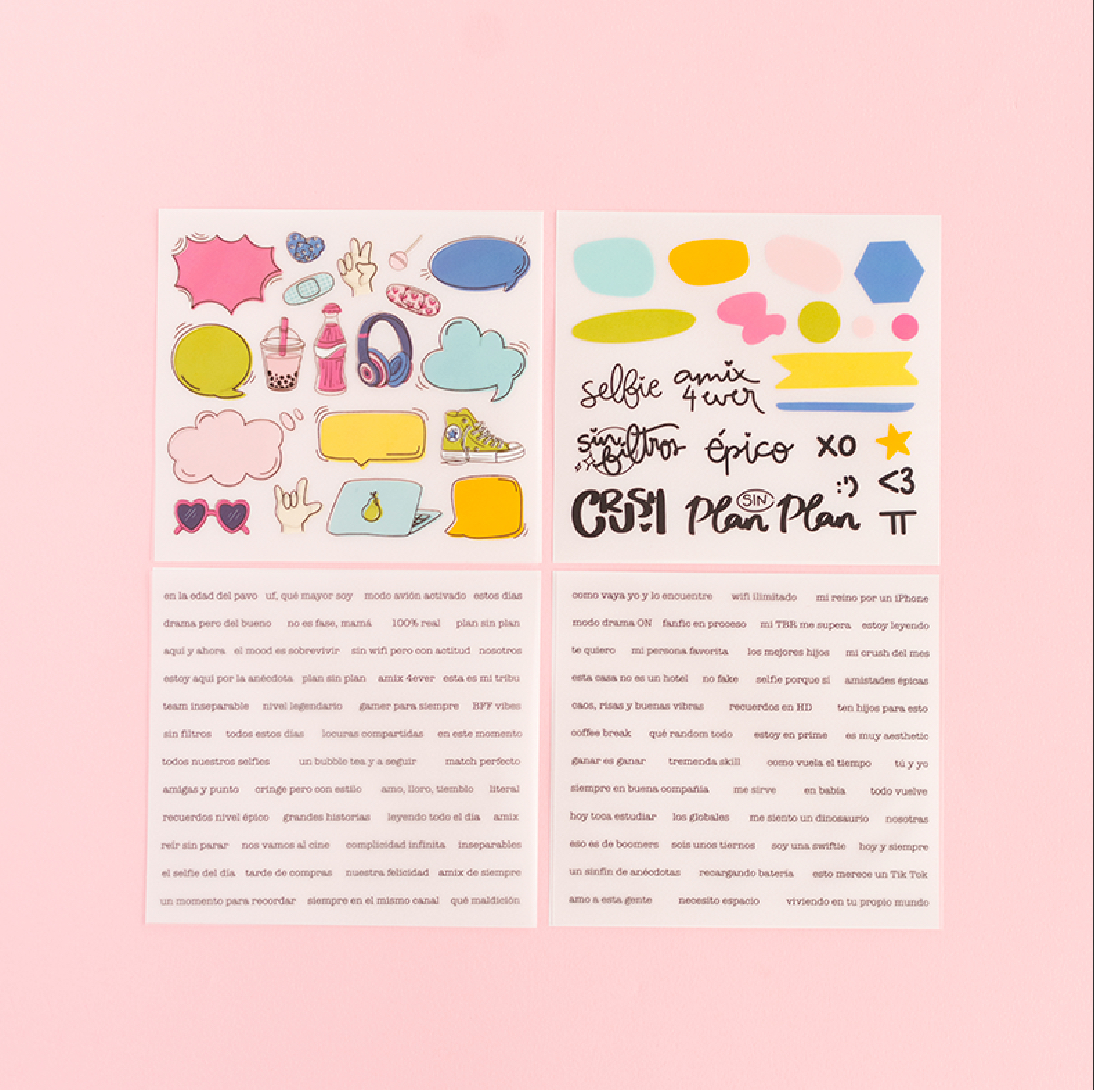 selfie amix 4ever
sin filtros épico XO
CRUSH Plan SIN Plan :') <3
π
en la edad del pavo uf, qué mayor soy modo avión activado estos días
drama pero del bueno no es fase, mamá 100% real plan sin plan
aquí y ahora el mood es sobrevivir sin wifi pero con actitud nosotros
estoy aquí por la anécdota plan sin plan amix 4ever esta es mi tribu
team inseparable nivel legendario gamer para siempre BFF vibes
sin filtros todos estos días locuras compartidas en este momento
todos nuestros selfies un bubble tea y a seguir match perfecto
amigas y punto cringe pero con estilo amo, lloro, tiemblo literal
recuerdos nivel épico grandes historias leyendo todo el día amix
reír sin parar nos vamos al cine complicidad infinita inseparables
el selfie del día tarde de compras nuestra felicidad amix de siempre
un momento para recordar siempre en el mismo canal qué maldición
como vaya yo y lo encuentre wifi ilimitado mi reino por un iPhone
modo drama ON fanfic en proceso mi TBR me supera estoy leyendo
te quiero mi persona favorita los mejores hijos mi crush del mes
esta casa no es un hotel no fake selfie porque sí amistades épicas
caos, risas y buenas vibras recuerdos en HD ten hijos para esto
coffee break qué random todo estoy en prime es muy aesthetic
ganar es ganar tremenda skill como vuela el tiempo tú y yo
siempre en buena compañía me sirve en babia todo vuelve
hoy toca estudiar los globales me siento un dinosaurio nosotras
eso es de boomers sois unos tiernos soy una swiftie hoy y siempre
un sinfín de anécdotas recargando batería esto merece un Tik Tok
amo a esta gente necesito espacio viviendo en tu propio mundo